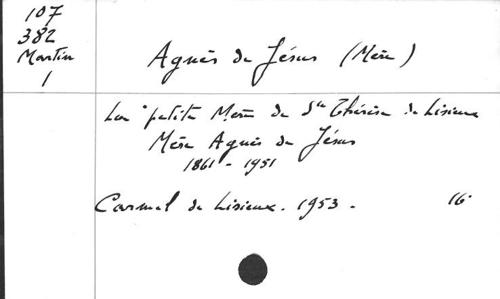 107
382
Martin
1
Agnès de Jésus (Mère)
La "petite Mère" de Ste Thérèse de Lisieux
Mère Agnès de Jésus
1861 - 1951
Carmel de Lisieux. 1953. 16°